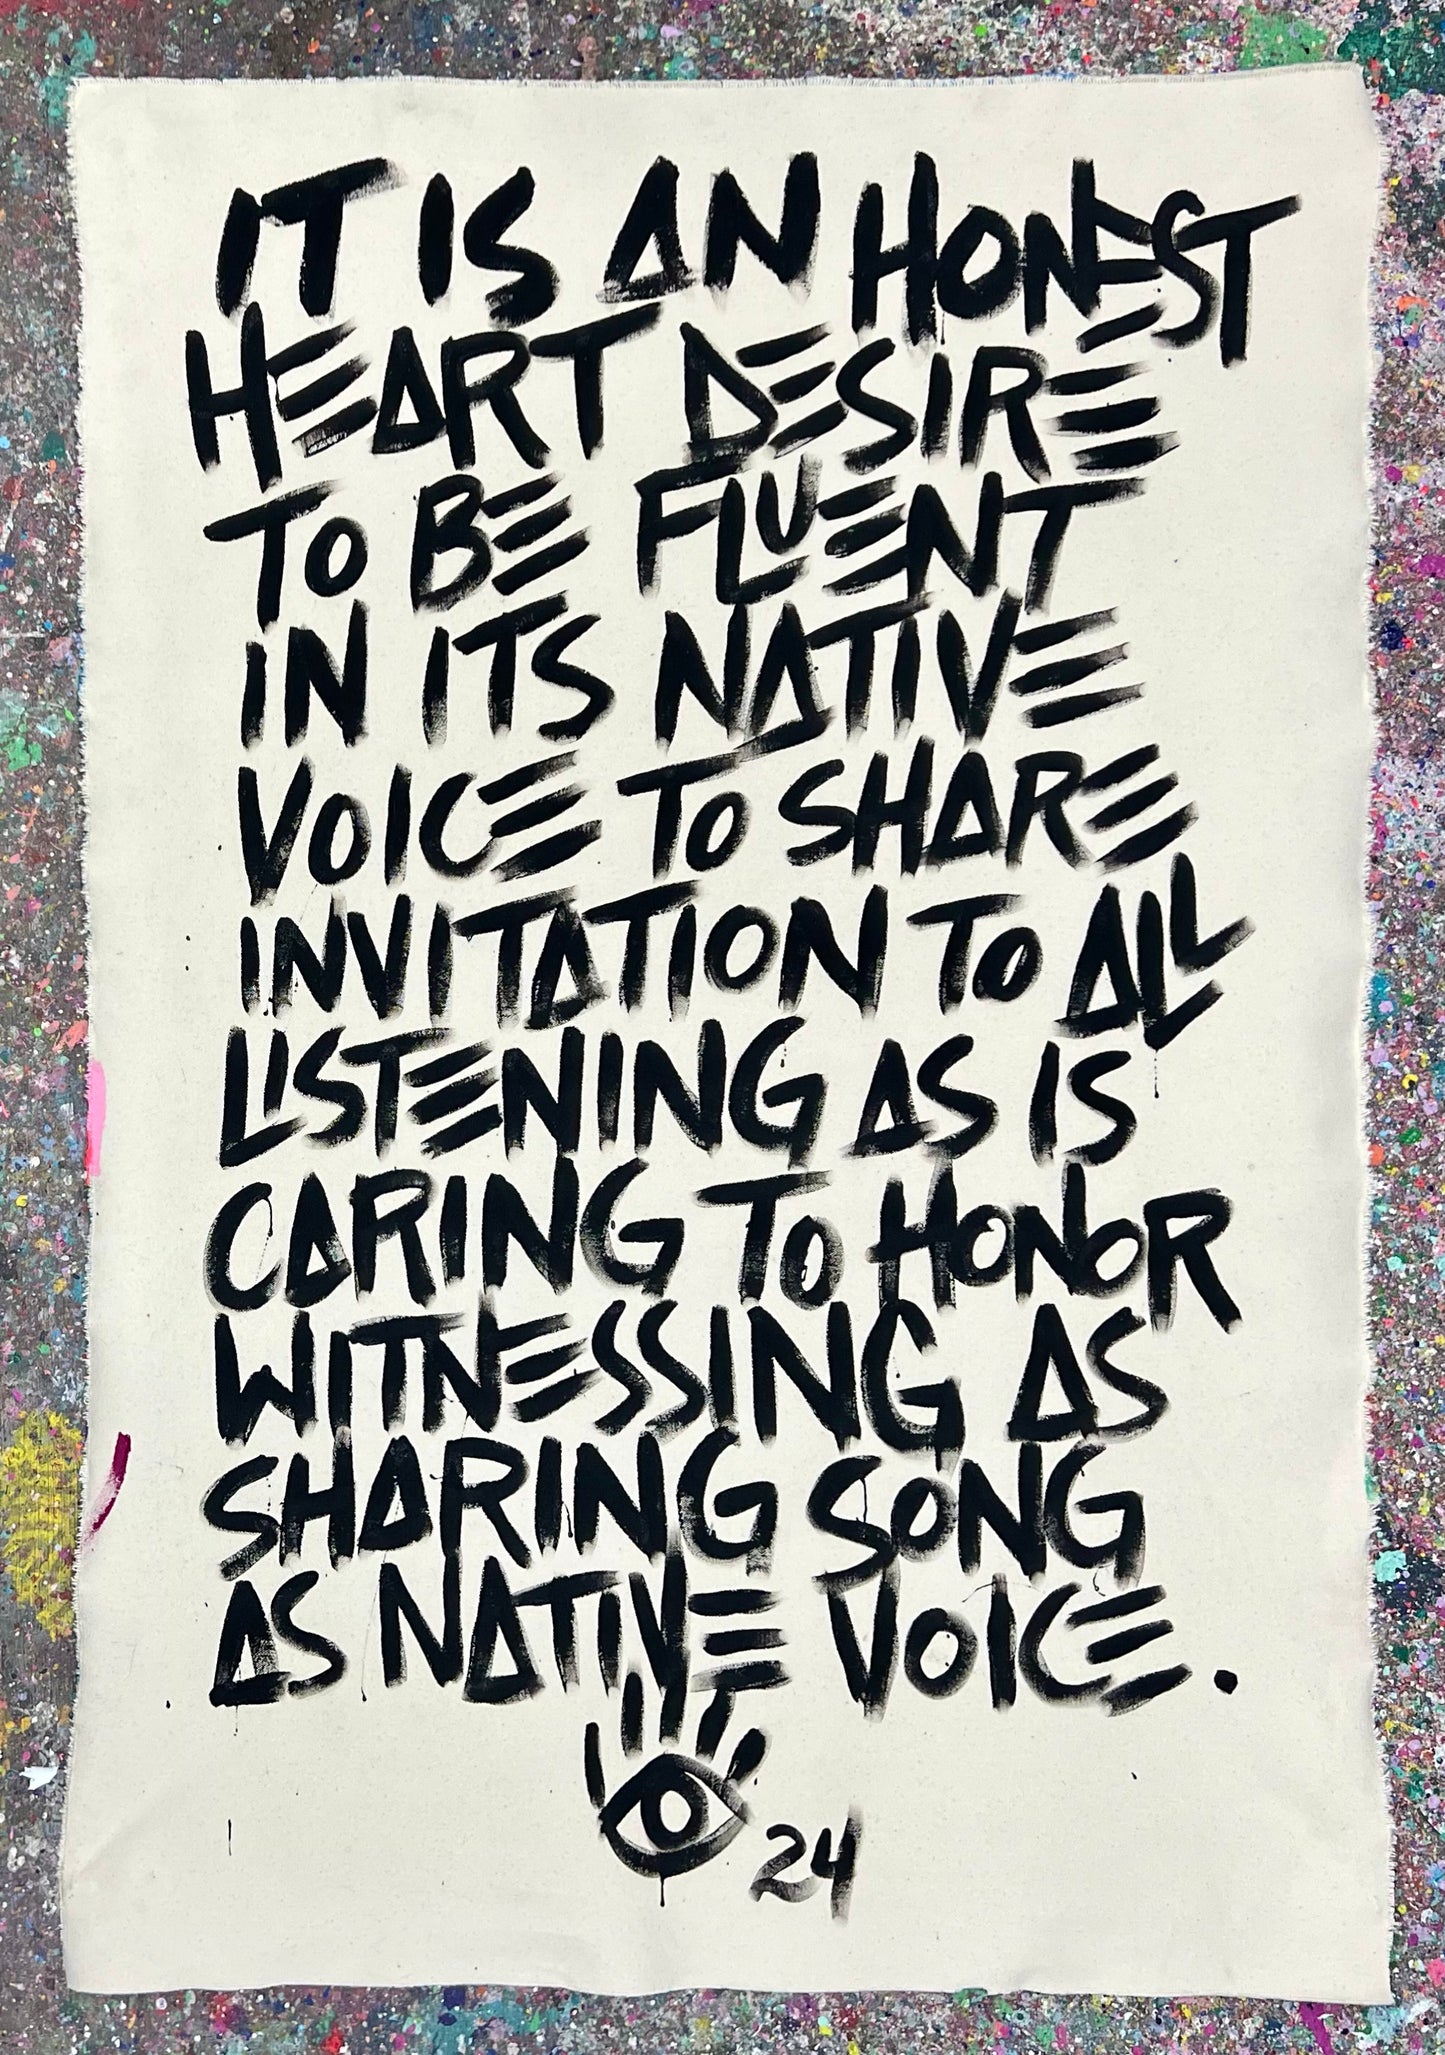 IT IS AN HONEST
HEART DESIRE
TO BE FLUENT
IN ITS NATIVE
VOICE TO SHARE
INVITATION TO ALL
LISTENING AS IS
CARING TO HONOR
WITNESSING AS
SHARING SONG
AS NATIVE VOICE.
24